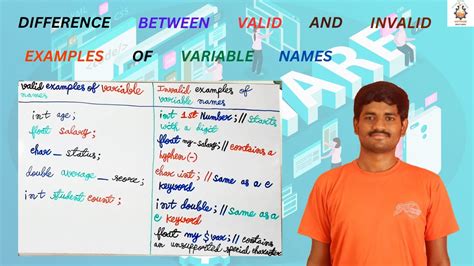 DIFFERENCE BETWEEN VALID AND INVALID
EXAMPLES OF VARIABLE NAMES
valid examples of variable
names
int age;
float salary;
char _ status;
double average _ score;
int student count;
Invalid examples of
variable names
int 1st Number; // starts
with a digit
float my-salary; // contains a
hyphen (-)
char int; // Same as a c
keyword
int double; // Same as a
c keyword
float my $ var; // contains
an unsupported special character
SHARE